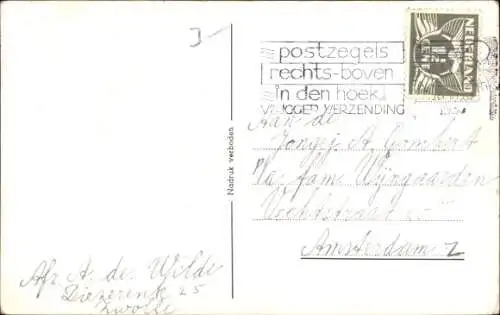 postzegels
rechts-boven
in den hoek
VLUGGER VERZENDING
NEDERLAND
1½
CENT
Aan de
Jongej. A. Gombert
p/a fam. Wijngaarden
Vechtstraat
Amsterdam Z
Nadruk verboden
Afz. A. de Wilde
Diezerenk 25
Zwolle